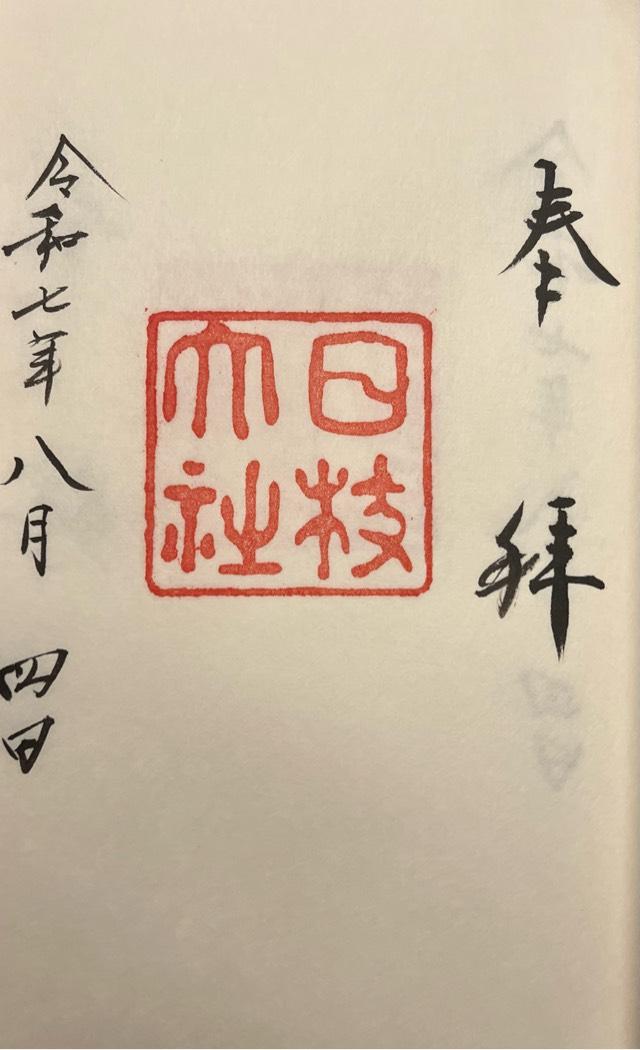 奉拝
日枝
大社
令和七年八月四日